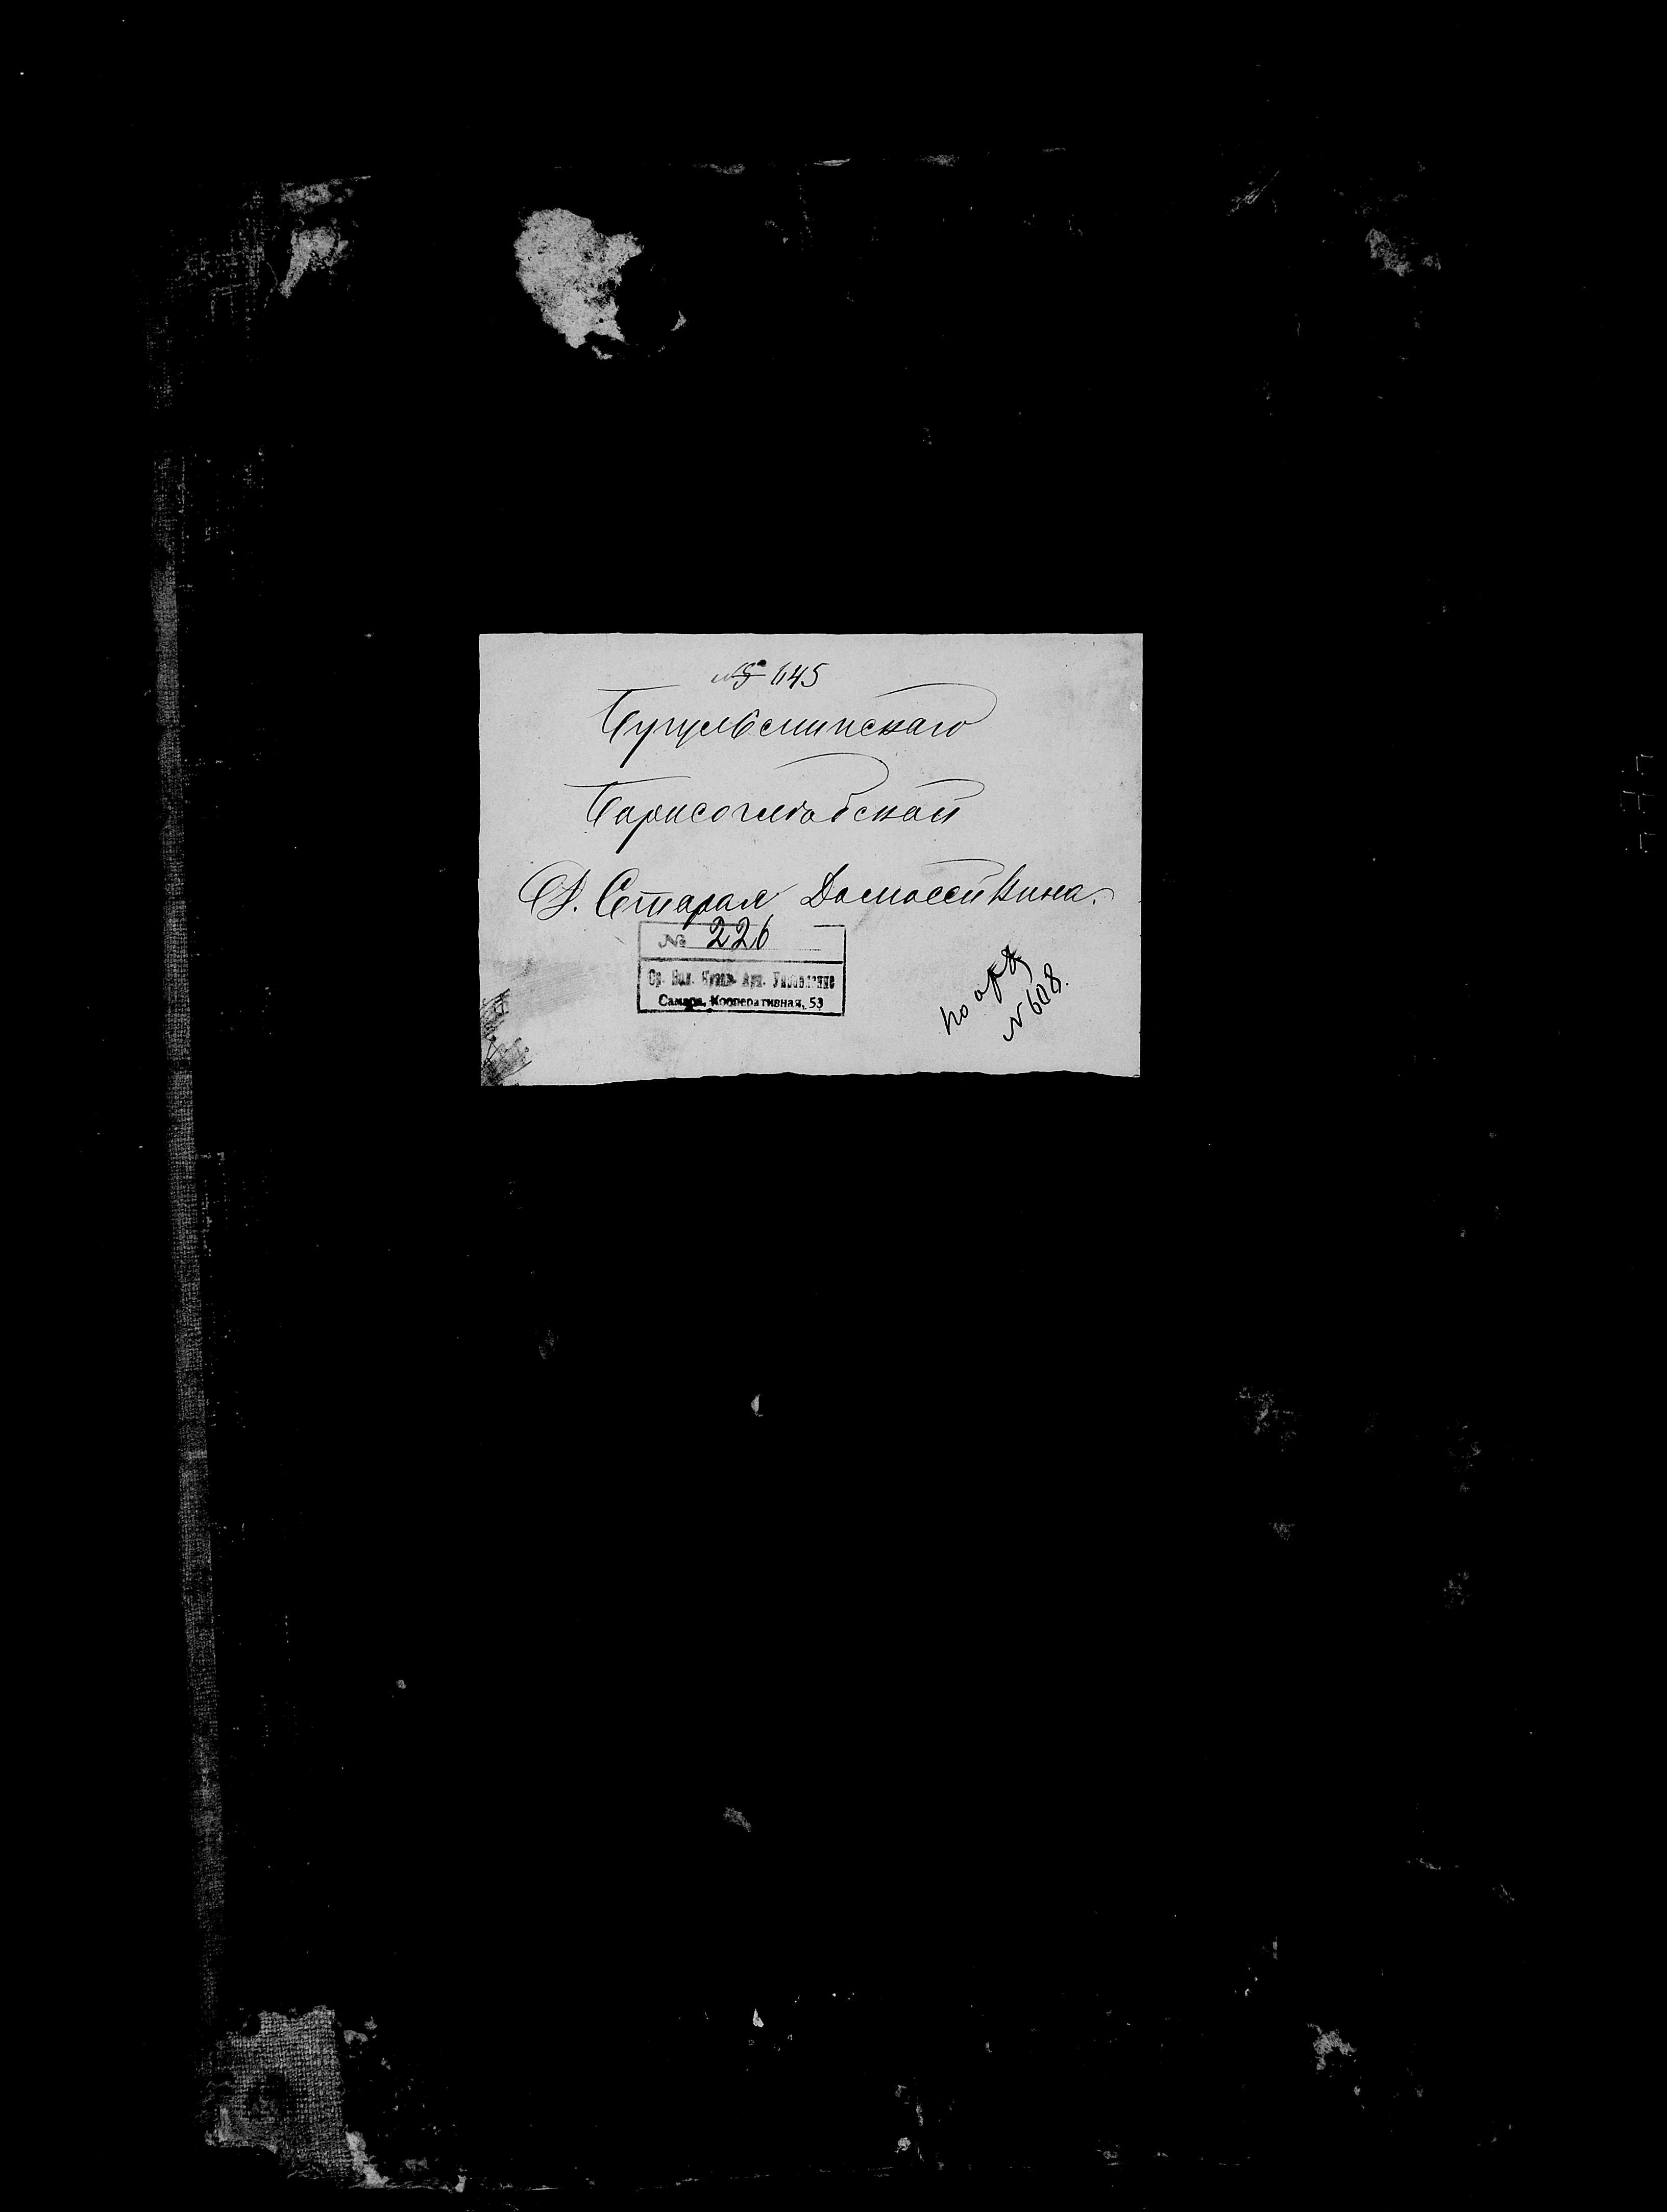 № 645
Бугульминскаго
Борисоглѣбской
Д. Старая Домосейкина.
№ 226
Ср. Вол. Краев. Арх. Управление
Самара, Кооперативная, 53
по арх
№ 608.